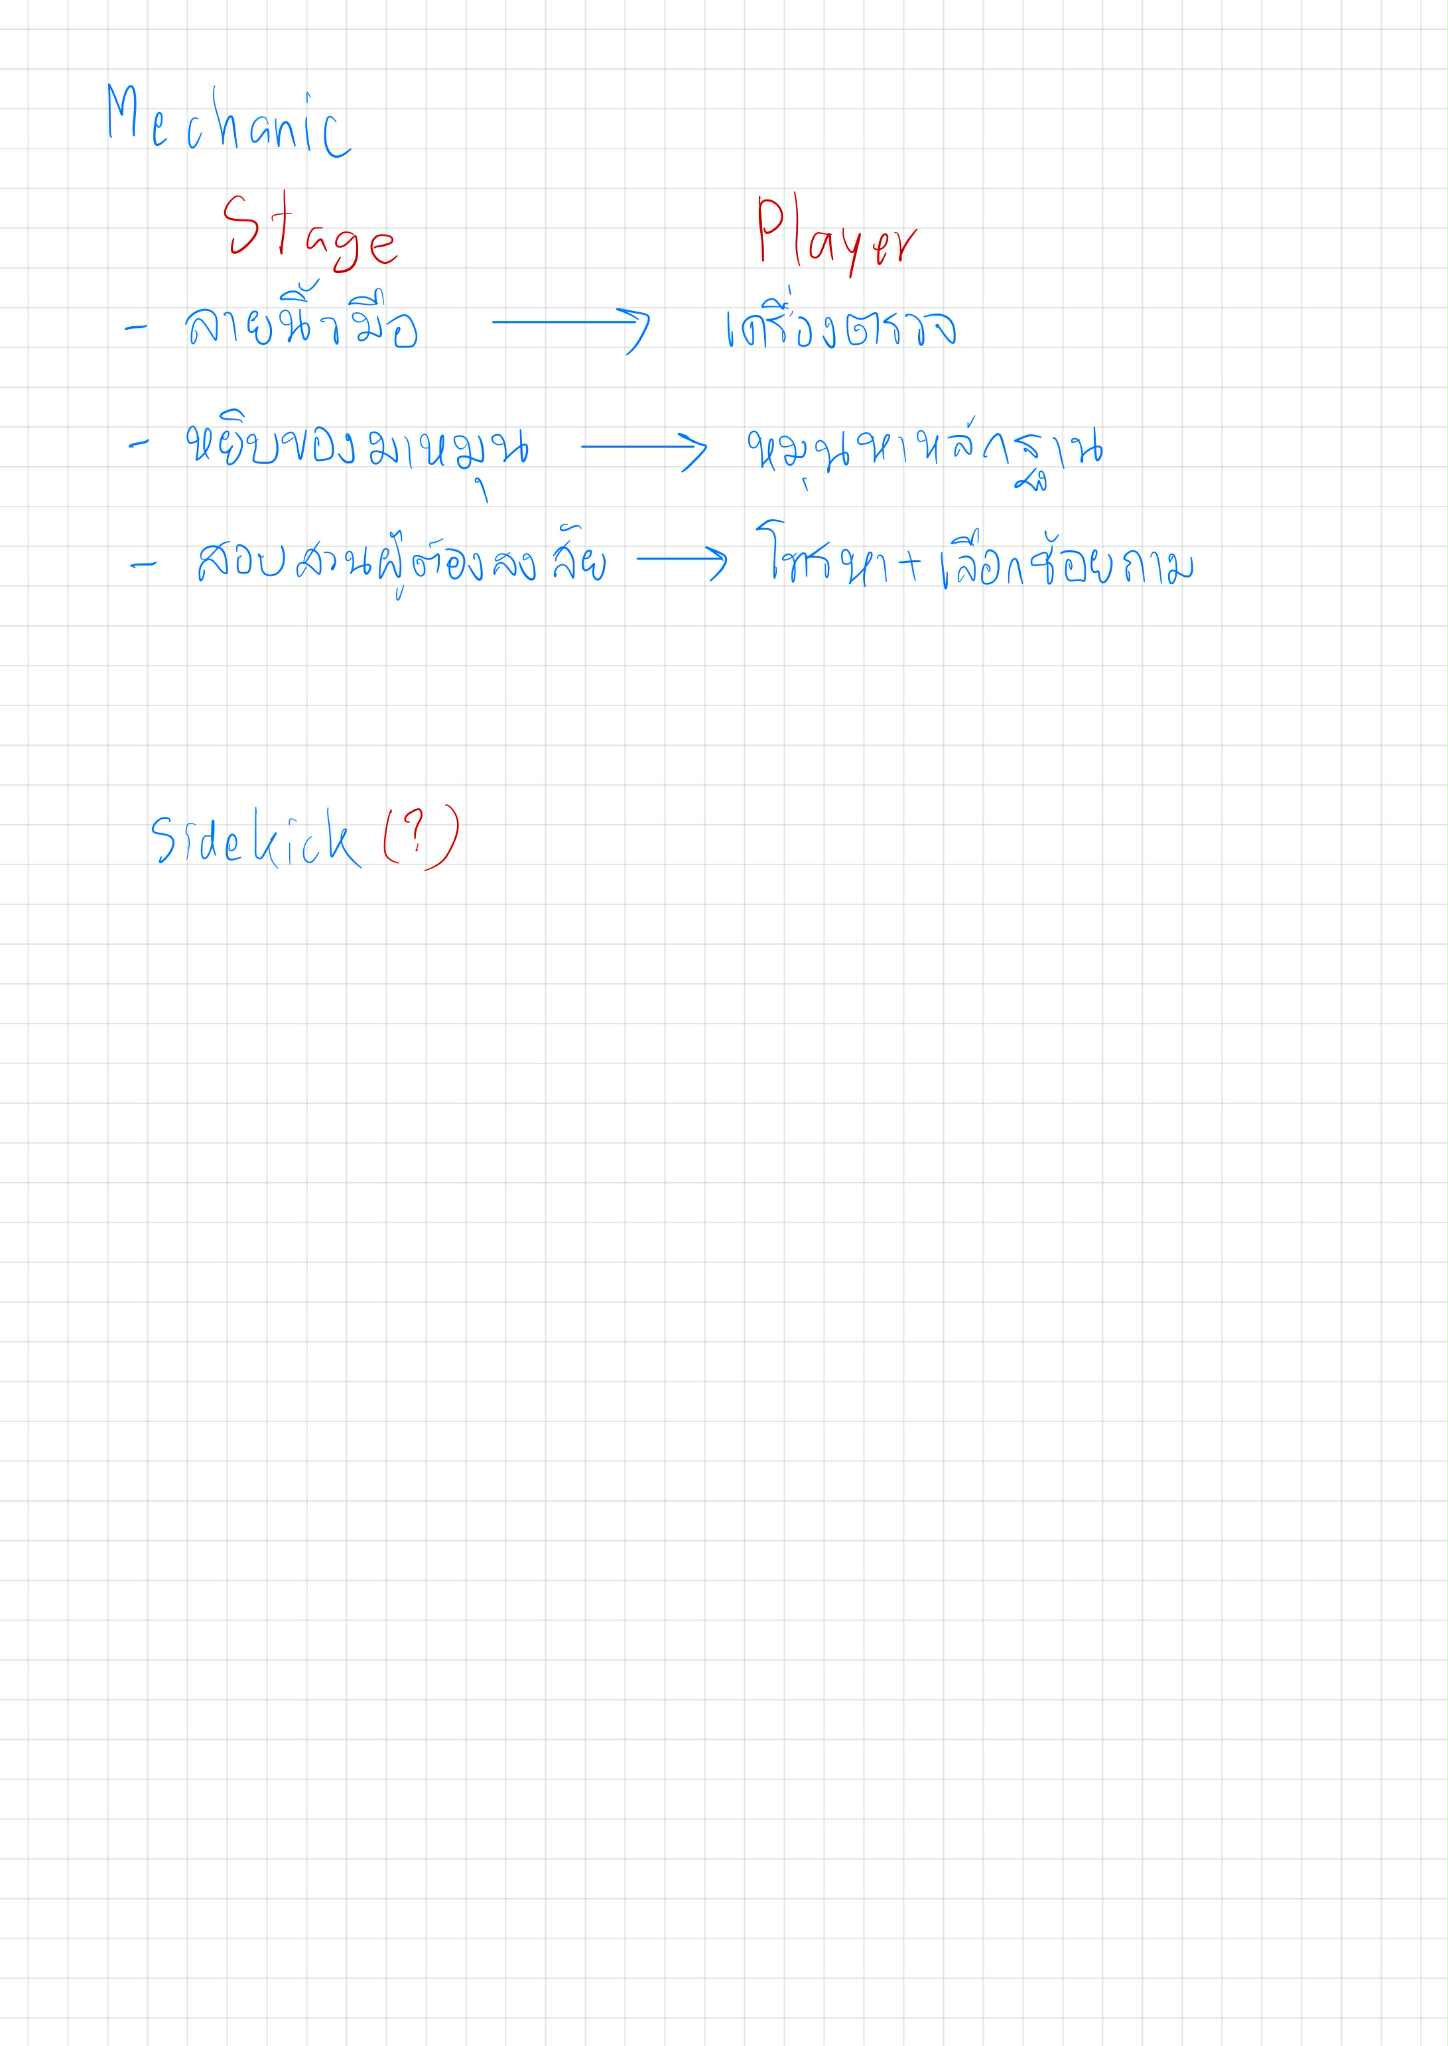 Mechanic
Stage Player
- ลายนิ้วมือ → เครื่องตรวจ
- หยิบของมาหมุน → หมุนหาหลักฐาน
- สอบสวนผู้ต้องสงสัย → โทรหา + เลือกช้อยถาม
Sidekick (?)